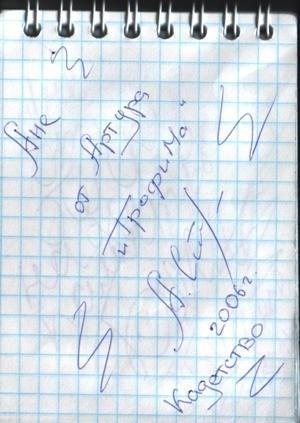 Ане
от Артура
и "Трофима"
2006 г.
Кадетство